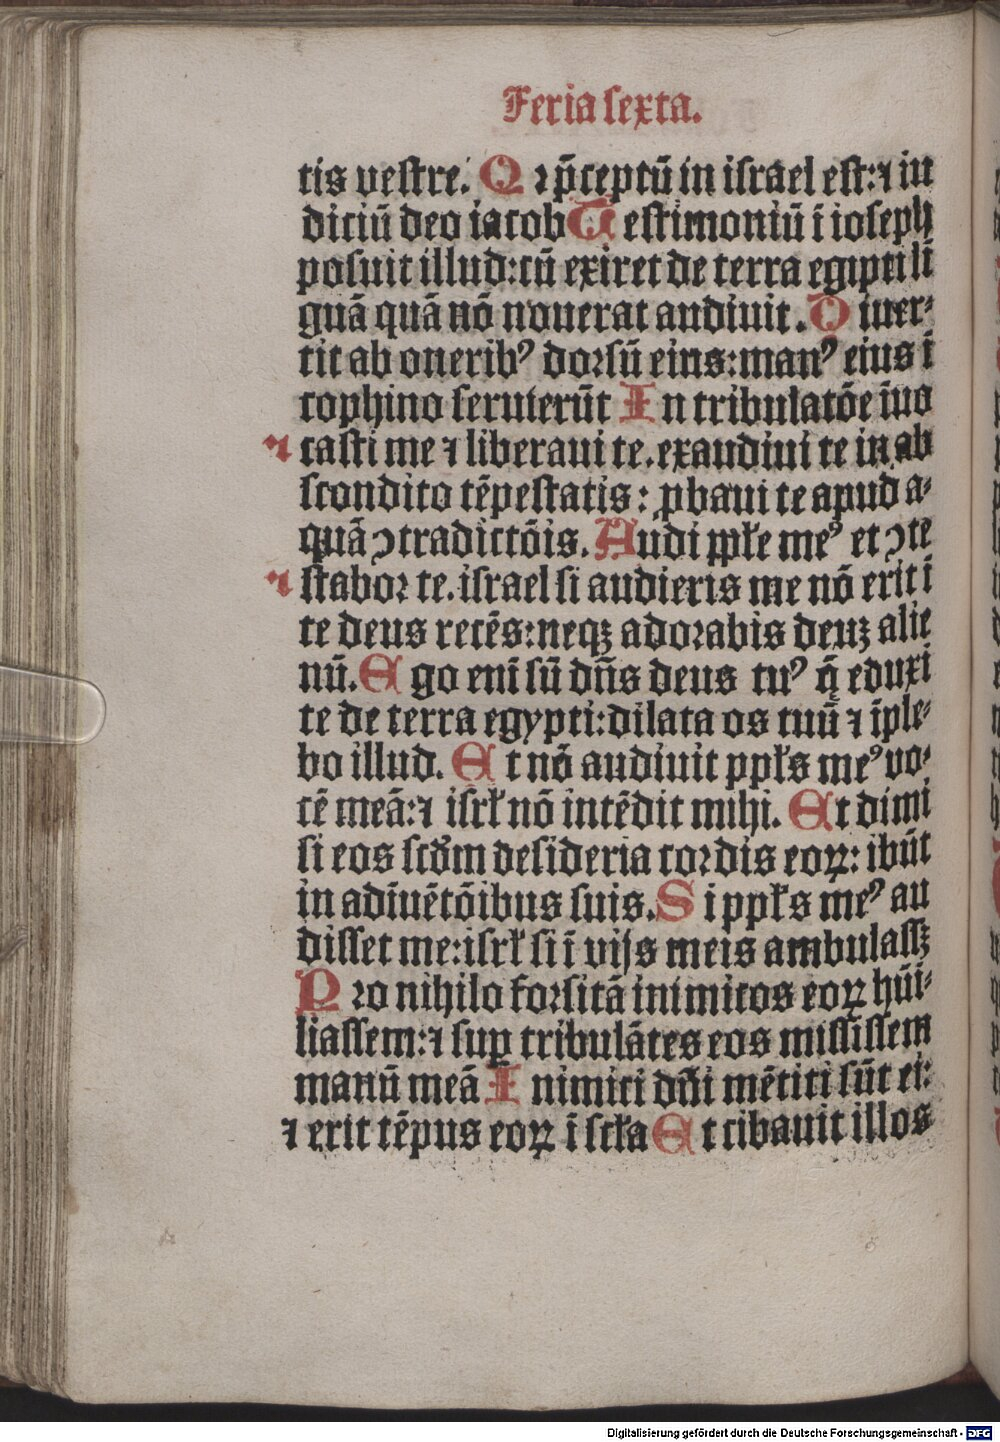 Feria sexta.
tis vestre. Q ꝛ p̄ceptū in israel est: ⁊ iu
diciū deo iacob T estimoniū ī ioseph
posuit illud: cū exiret de terra egipti lī
guā quā nō nouerat audiuit. D iuer-
tit ab onerib⁹ doꝛsū eius: man⁹ eius ī
cophino seruierūt I n tribulatōe īuo
⁊ casti me ⁊ liberaui te. exaudiui te in ab
scondito tēpestatis: ꝓbaui te apud a-
quā ꝯtradictōis. Audi ppl̄e me⁹ et ꝯte
⁊ staboꝛ te. israel si audieris me nō erit ī
te deus recēs: neqꝫ adoꝛabis deuꝫ alie
nū. E go eni̅ sū dn̄s deus tu⁹ q̄ eduxi
te de terra egypti: dilata os tuū ⁊ īple-
bo illud. E t nō audiuit ppl̄s me⁹ vo-
cē meā: ⁊ isrl̄ nō intēdit mihi. E t dimi
si eos scd̄m desideria coꝛdis eoꝝ: ibūt
in adīuētōibus suis. S i ppl̄s me⁹ au
disset me: isrl̄ si ī vijs meis ambulassꝫ
P ro nihilo foꝛsitā inimicos eoꝝ hūi-
liassem: ⁊ suꝑ tribulātes eos misissem
manū meā I nimici dn̄i mētiti sūt ei:
⁊ erit tēpus eoꝝ ī scl̄a E t cibauit illos
Digitalisierung gefördert durch die Deutsche Forschungsgemeinschaft - DFG